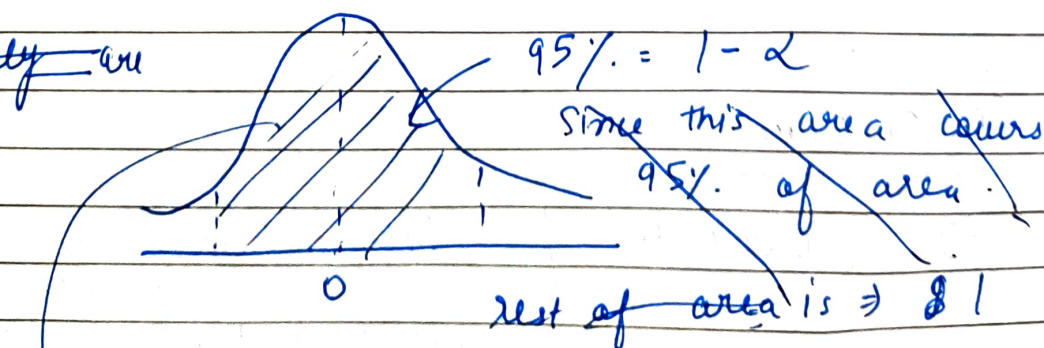 ty are
95%. = 1 - α
Since this area covers
95%. of area.
0
rest of area is ⇒ 1